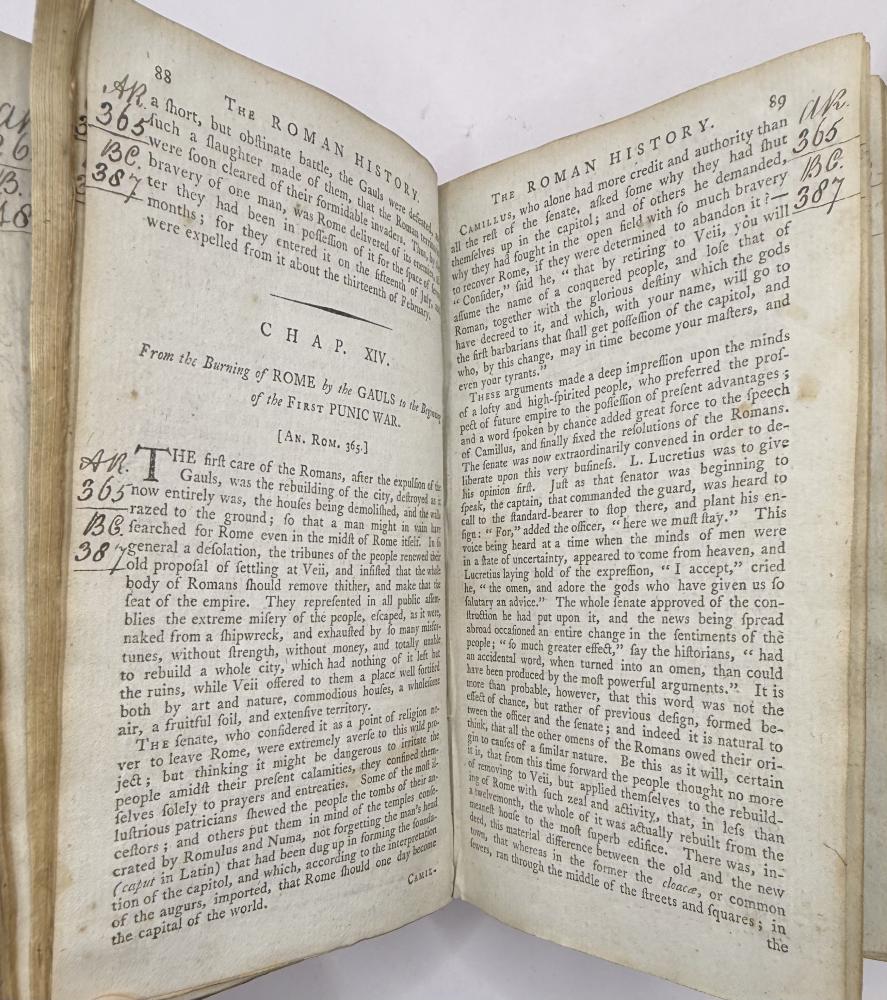 88
THE ROMAN HISTORY.
AR.
365
BC.
387
a ſhort, but obſtinate battle, the Gauls were defeated, and
ſuch a ſlaughter made of them, that the Roman territories
were ſoon cleared of their formidable invaders. Thus, by the
bravery of one man, was Rome delivered of its enemies, af-
ter they had been in poſſeſſion of it for the ſpace of ſeven
months; for they entered it on the fifteenth of July, and
were expelled from it about the thirteenth of February.
CHAP. XIV.
From the Burning of ROME by the GAULS to the Beginning
of the FIRST PUNIC WAR.
[AN. ROM. 365.]
AR.
365
BC.
387
THE firſt care of the Romans, after the expulſion of the
Gauls, was the rebuilding of the city, deſtroyed as it
now entirely was, the houſes being demoliſhed, and the walls
razed to the ground; ſo that a man might in vain have
ſearched for Rome even in the midſt of Rome itſelf. In ſo
general a deſolation, the tribunes of the people renewed their
old propoſal of ſettling at Veii, and inſiſted that the whole
body of Romans ſhould remove thither, and make that the
ſeat of the empire. They repreſented in all public aſſem-
blies the extreme miſery of the people, eſcaped, as it were,
naked from a ſhipwreck, and exhauſted by ſo many misfor-
tunes, without ſtrength, without money, and totally unable
to rebuild a whole city, which had nothing of it left but
the ruins, while Veii offered to them a place well fortified
both by art and nature, commodious houſes, a wholeſome
air, a fruitful ſoil, and extenſive territory.
THE ſenate, who conſidered it as a point of religion ne-
ver to leave Rome, were extremely averſe to this wild pro-
ject; but thinking it might be dangerous to irritate the
people amidſt their preſent calamities, they confined them-
ſelves ſolely to prayers and entreaties. Some of the moſt il-
luſtrious patricians ſhewed the people the tombs of their an-
ceſtors; and others put them in mind of the temples conſe-
crated by Romulus and Numa, not forgetting the man's head
(caput in Latin) that had been dug up in forming the founda-
tion of the capitol, and which, according to the interpretation
of the augurs, imported, that Rome ſhould one day become
the capital of the world.
CAMIL-
THE ROMAN HISTORY.
89
AR.
365
BC.
387
CAMILLUS, who alone had more credit and authority than
all the reſt of the ſenate, aſked ſome why they had ſhut
themſelves up in the capitol; and of others he demanded,
why they had fought in the open field with ſo much bravery
to recover Rome, if they were determined to abandon it?—
“ Conſider,” ſaid he, “ that by retiring to Veii, you will
aſſume the name of a conquered people, and loſe that of
Roman, together with the glorious deſtiny which the gods
have decreed to it, and which, with your name, will go to
the firſt barbarians that ſhall get poſſeſſion of the capitol, and
who, by this change, may in time become your maſters, and
even your tyrants.”
THESE arguments made a deep impreſſion upon the minds
of a lofty and high-ſpirited people, who preferred the proſ-
pect of future empire to the poſſeſſion of preſent advantages;
and a word ſpoken by chance added great force to the ſpeech
of Camillus, and finally fixed the reſolutions of the Romans.
The ſenate was now extraordinarily convened in order to de-
liberate upon this very buſineſs. L. Lucretius was to give
his opinion firſt. Juſt as that ſenator was beginning to
ſpeak, the captain, that commanded the guard, was heard to
call to the ſtandard-bearer to ſtop there, and plant his en-
ſign: “ For,” added the officer, “ here we muſt ſtay.” This
voice being heard at a time when the minds of men were
in a ſtate of uncertainty, appeared to come from heaven, and
Lucretius laying hold of the expreſſion, “ I accept,” cried
he, “ the omen, and adore the gods who have given us ſo
ſalutary an advice.” The whole ſenate approved of the con-
ſtruction he had put upon it, and the news being ſpread
abroad occaſioned an entire change in the ſentiments of the
people; “ ſo much greater effect,” ſay the hiſtorians, “ had
an accidental word, when turned into an omen, than could
have been produced by the moſt powerful arguments.” It is
more than probable, however, that this word was not the
effect of chance, but rather of previous deſign, formed be-
tween the officer and the ſenate; and indeed it is natural to
think, that all the other omens of the Romans owed their ori-
gin to cauſes of a ſimilar nature. Be this as it will, certain
it is, that from this time forward the people thought no more
of removing to Veii, but applied themſelves to the rebuild-
ing of Rome with ſuch zeal and activity, that, in leſs than
a twelvemonth, the whole of it was actually rebuilt from the
meaneſt houſe to the moſt ſuperb edifice. There was, in-
deed, this material difference between the old and the new
town, that whereas in the former the cloacæ, or common
ſewers, ran through the middle of the ſtreets and ſquares; in
the